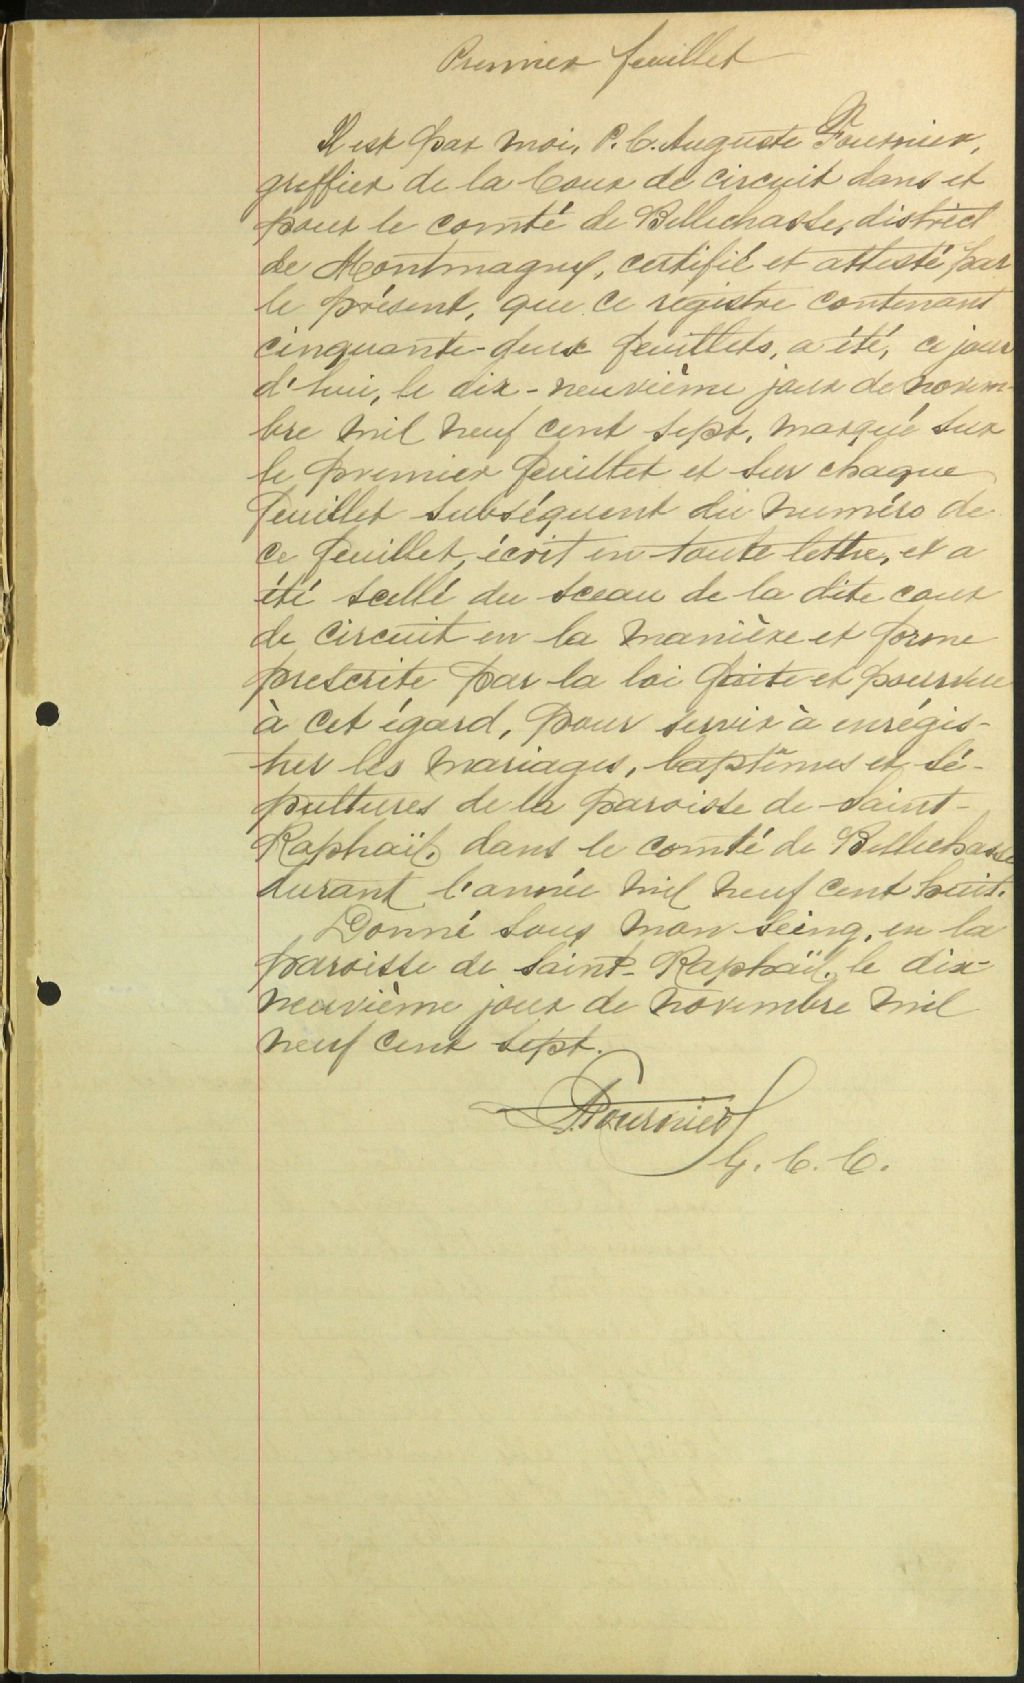 Premier feuillet
Il est par moi, P. C. Auguste Fournier,
greffier de la Cour de circuit dans et
pour le comté de Bellechasse, district
de Montmagny, certifié et attesté par
le présent, que ce registre contenant
cinquante-deux feuillets, a été, ce jour
d'hui, le dix-neuvième jour de novem-
bre mil neuf cent sept, marqué sur
le premier feuillet et sur chaque
feuillet subséquent du numéro de
ce feuillet, écrit en toute lettre, et a
été scellé du sceau de la dite cour
de circuit en la manière et forme
prescrite par la loi faite et pourvue
à cet égard, pour servir à enrégis-
trer les mariages, baptêmes et sé-
pultures de la paroisse de Saint-
Raphaël, dans le comté de Bellechasse
durant l'année mil neuf cent huit.
Donné sous mon seing, en la
paroisse de Saint-Raphaël, le dix-
neuvième jour de novembre mil
neuf cent sept.
Fournier
G. C. C.